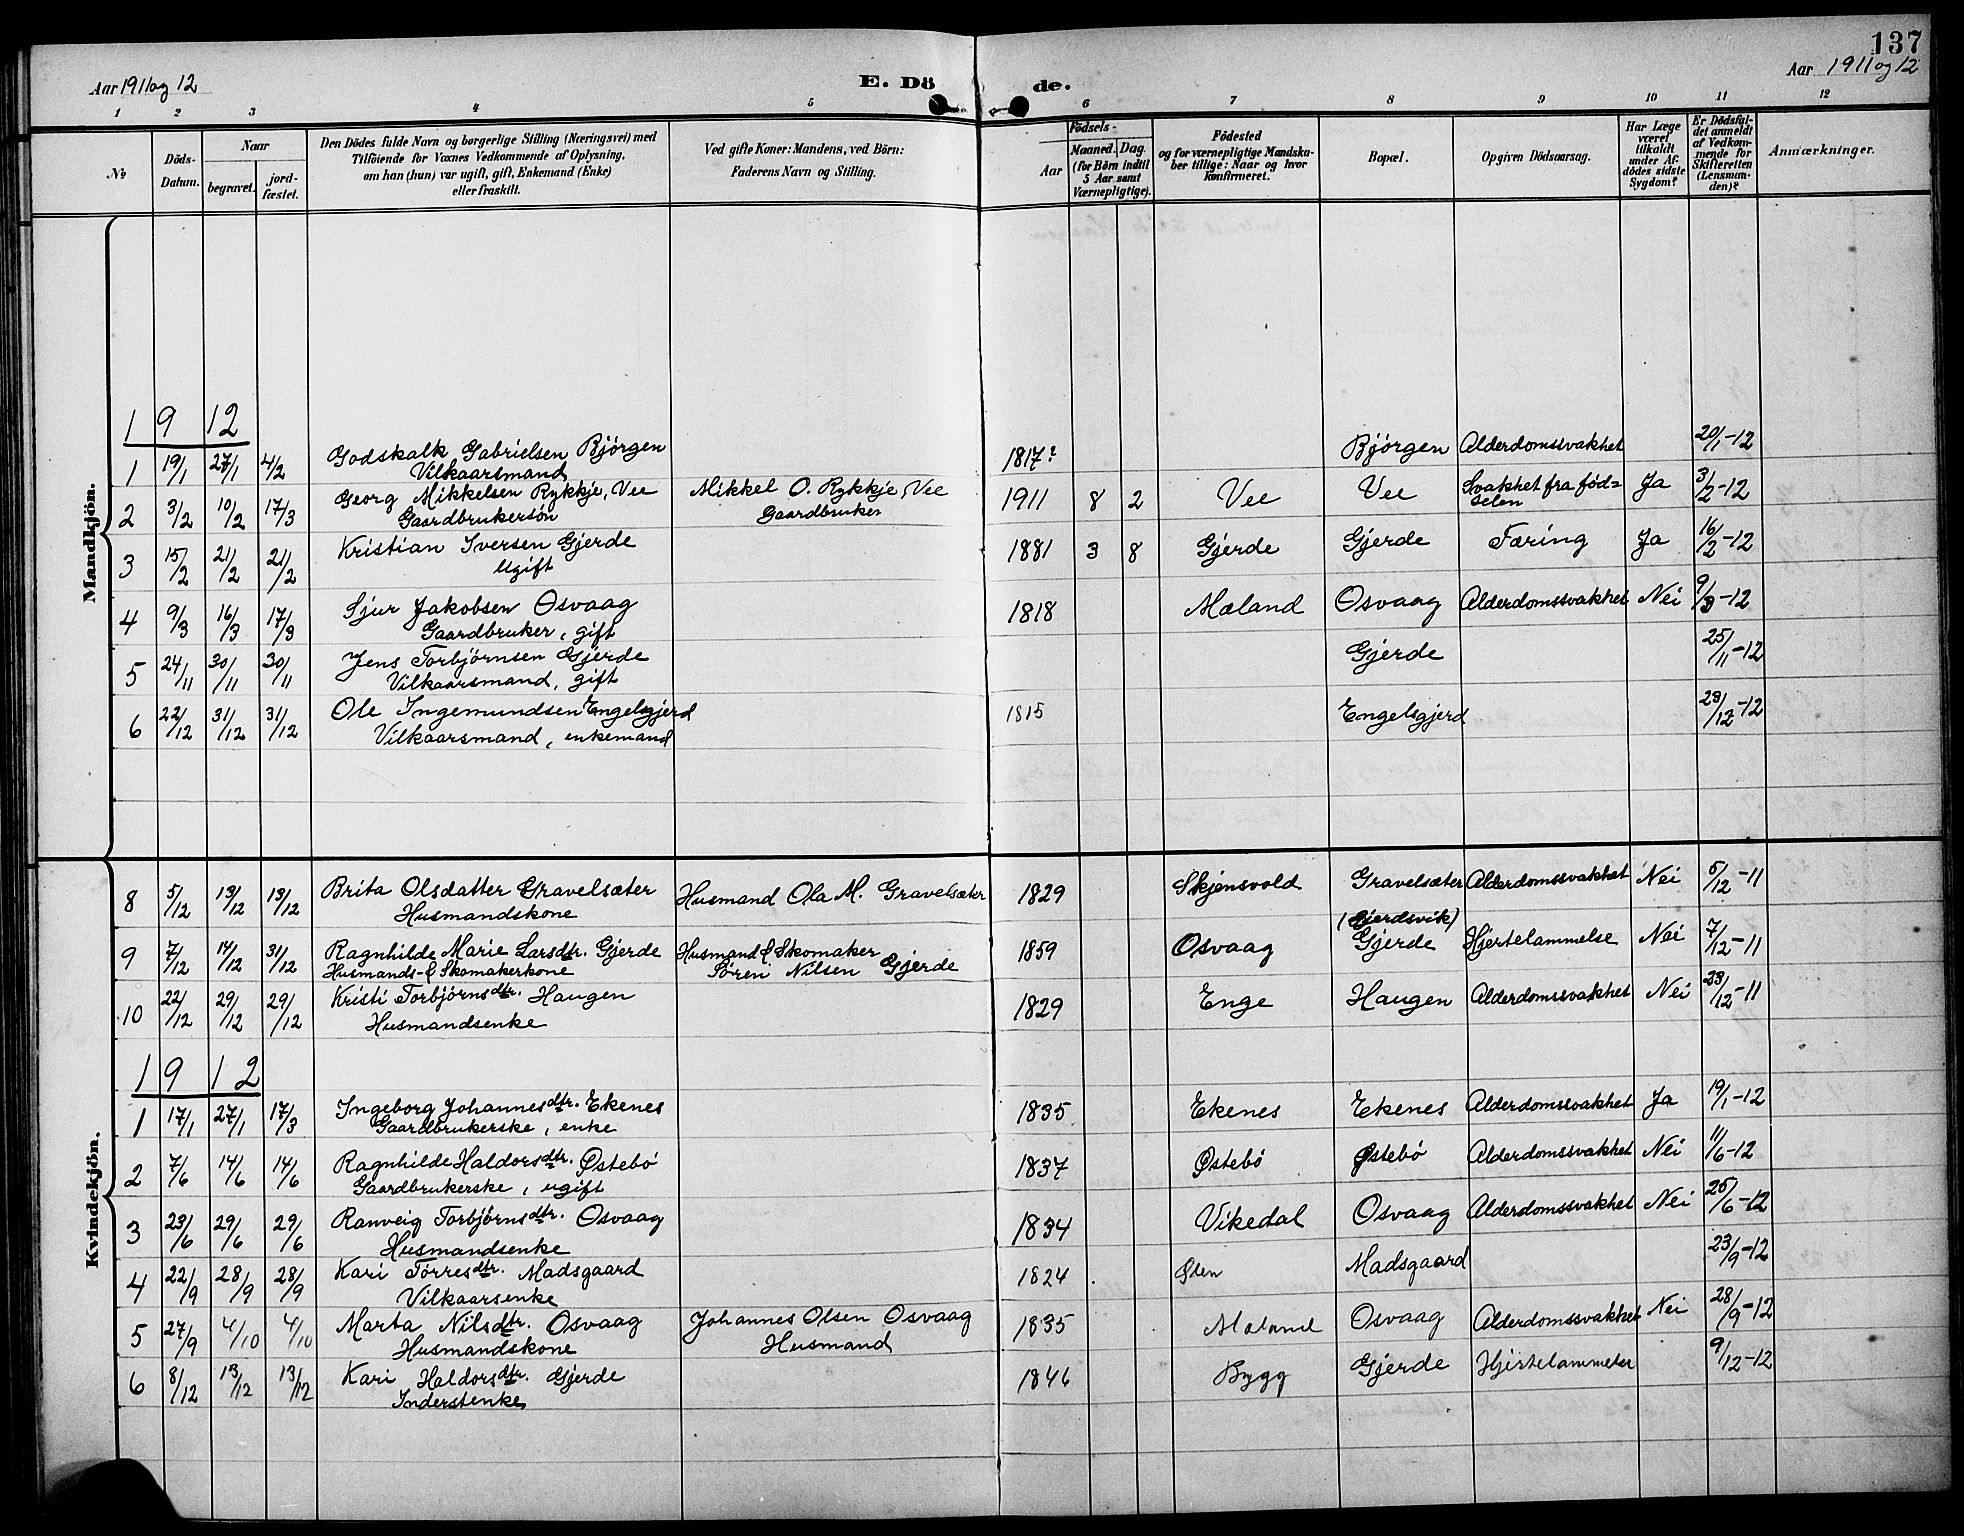 137
Aar 1911 og 12
E. Dö de.
Aar 1911 og 12
1 2 3 4 5 6 7 8 9 10 11 12
№
Döds-Datum.
Naar
begravet.
jord-fæstet.
Den Dödes fulde Navn og borgerlige Stilling (Næringsvei) med
Tilföiende for Voxnes Vedkommende af Oplysning,
om han (hun) var ugift, gift, Enkemand (Enke)
eller fraskilt.
Ved gifte Koner: Mandens, ved Börn:
Faderens Navn og Stilling.
Födsels-
Aar
Maaned. Dag.
(for Börn indtil
5 Aar samt
Værnepligtige).
Födested
og for værnepligtige Mandska-
ber tillige: Naar og hvor
konfirmeret.
Bopæl.
Opgiven Dödsaarsag.
Har Læge
været
tilkaldt
under Af-
dödes sidste
Sygdom?
Er Dödsfal-
det anmeldt
af Vedkom-
mende for
Skifteretten
(Lensman-
den)?
Anmærkninger.
Mandkjön.
1912
1 19/1 27/1 4/2 Godskalk Gabrielsen Bjørgen 1817? Bjørgen Alderdomssvakhet 20/1-12
Vilkaarsmand
2 3/2 10/2 17/3 Georg Mikkelsen Rykkje, Vee Mikkel O. Rykkje, Vee 1911 8 2 Vee Vee Svakhet fra fød= Ja 3/2-12
Gaardbrukersøn Gaardbruker selen
3 15/2 21/2 21/2 Kristian Iversen Gjerde 1881 3 8 Gjerde Gjerde Tæring Ja 16/2-12
Ugift
4 9/3 16/3 17/3 Sjur Jakobsen Osvaag 1818 Mæland Osvaag Alderdomssvakhet Nei 9/3-12
Gaardbruker, gift
5 24/11 30/11 30/11 Jens Torbjørnsen Gjerde Gjerde 25/11-12
Vilkaarsmand, gift
6 22/12 31/12 31/12 Ole Ingemundsen Engelsgjerd 1815 Engelsgjerd 23/12-12
Vilkaarsmand, enkemand
Kvindekjön.
8 5/12 13/12 13/12 Brita Olsdatter Gravelsæter Husmand Ola M. Gravelsæter 1829 Skjensvold Gravelsæter Alderdomssvakhet Nei 6/12-11
Husmandskone
(Gjerdsvik)
9 7/12 14/12 31/12 Ragnhilde Marie Larsdtr. Gjerde Husmand & Skomaker 1859 Osvaag Gjerde Hjertelammelse Nei 7/12-11
Husmands- & Skomakerkone Søren Nilsen Gjerde
10 22/12 29/12 29/12 Kristi Torbjørnsdtr. Haugen 1829 Enge Haugen Alderdomssvakhet Nei 23/12-11
Husmandsenke
1912
1 17/1 27/1 17/3 Ingeborg Johannesdtr. Ekenes 1835 Ekenes Ekenes Alderdomssvakhet Ja 19/1-12
Gaardbrukerske, enke
2 7/6 14/6 14/6 Ragnhilde Haldorsdtr. Østebø 1837 Østebø Østebø Alderdomssvakhet Nei 11/6-12
Gaardbrukerske, ugift
3 23/6 29/6 29/6 Ranveig Torbjørnsdtr. Osvaag 1834 Vikedal Osvaag Alderdomssvakhet Nei 25/6-12
Husmandsenke
4 22/9 28/9 28/9 Kari Tørresdtr. Madsgaard 1824 Madsgaard 23/9-12
Vilkaarsenke
5 27/9 4/10 4/10 Marta Nilsdtr. Osvaag Johannes Olsen Osvaag 1835 Osvaag Alderdomssvakhet Nei 28/9-12
Husmandskone Husmand
6 8/12 13/12 13/12 Kari Haldorsdtr. Gjerde 1846 Bygg Gjerde 9/12-12
Inderstenke